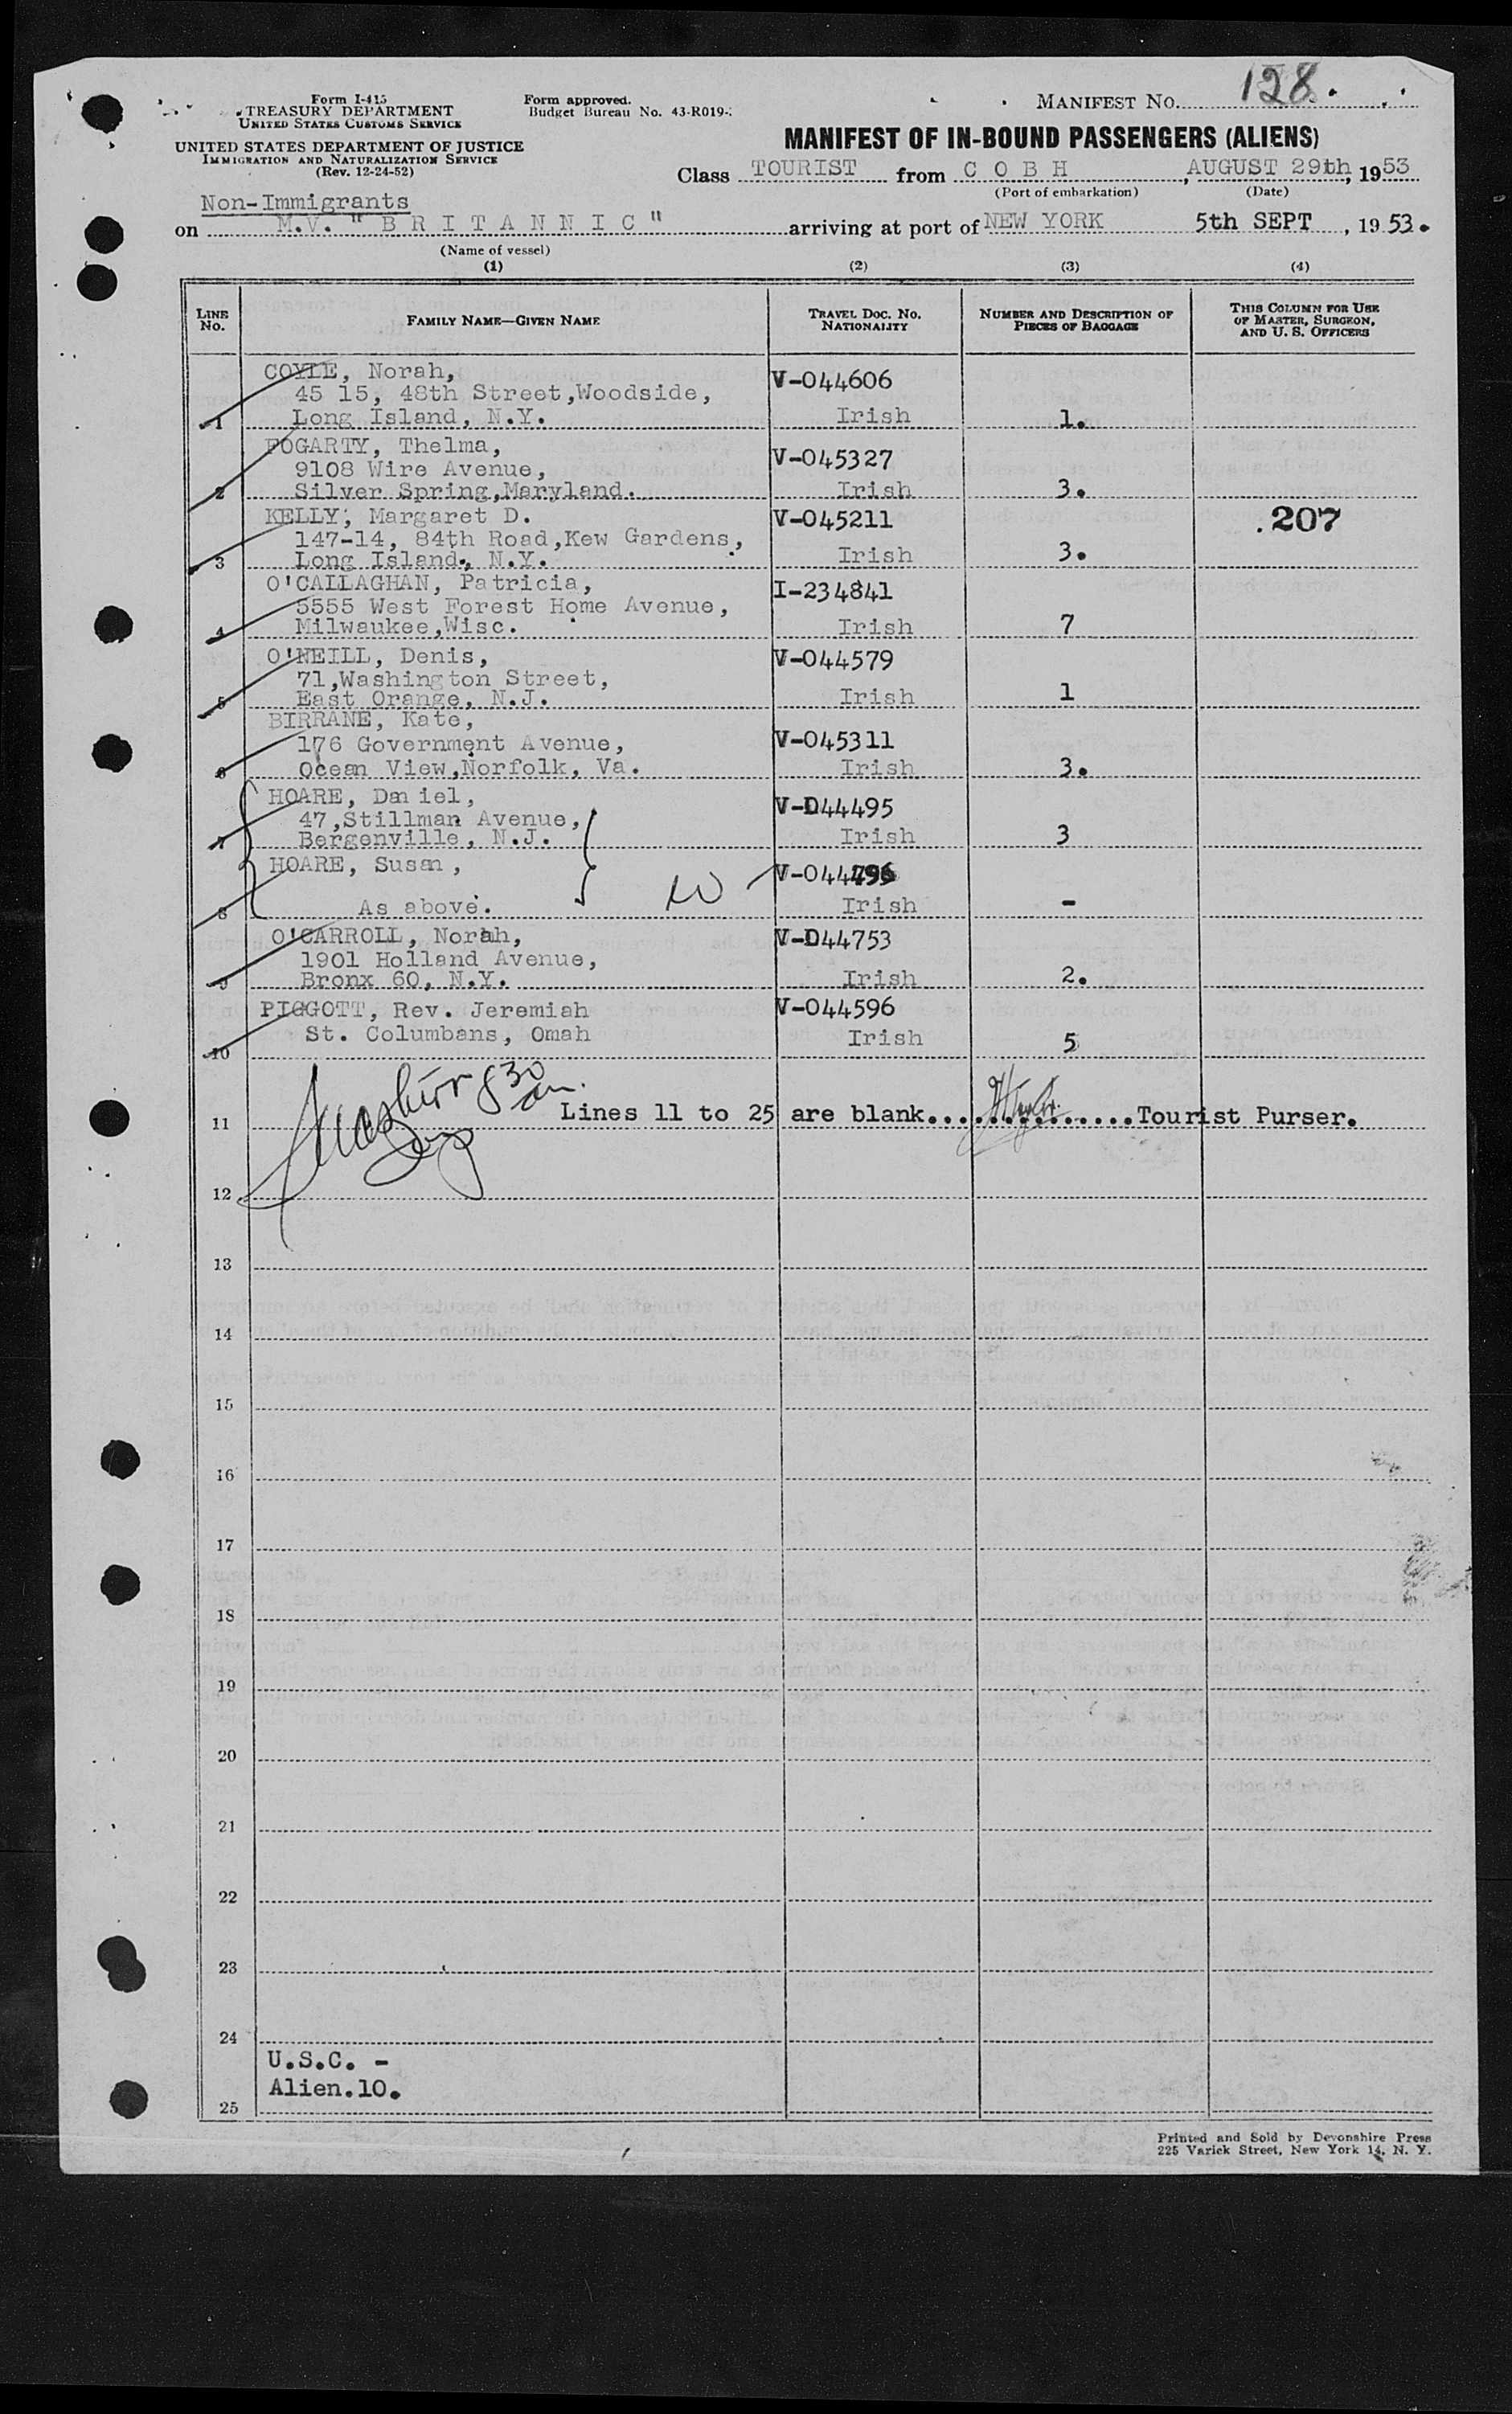 Form I-415
TREASURY DEPARTMENT
UNITED STATES CUSTOMS SERVICE
UNITED STATES DEPARTMENT OF JUSTICE
IMMIGRATION AND NATURALIZATION SERVICE
(Rev. 12-24-52)
Form approved.
Budget Bureau No. 43-R019-
MANIFEST NO. 128.
MANIFEST OF IN-BOUND PASSENGERS (ALIENS)
Class TOURIST from C O B H, AUGUST 29th, 1953
(Port of embarkation) (Date)
Non-Immigrants
on M.V. "B R I T A N N I C" arriving at port of NEW YORK 5th SEPT, 1953.
(Name of vessel)
(1) (2) (3) (4)
LINE No. FAMILY NAME—GIVEN NAME TRAVEL DOC. NO. NATIONALITY NUMBER AND DESCRIPTION OF PIECES OF BAGGAGE THIS COLUMN FOR USE OF MASTER, SURGEON, AND U. S. OFFICERS
COYLE, Norah, V-044606
45 15, 48th Street,Woodside,
1 Long Island, N.Y. Irish 1.
FOGARTY, Thelma, V-045327
9108 Wire Avenue,
2 Silver Spring,Maryland. Irish 3.
KELLY, Margaret D. V-045211 .207
147-14, 84th Road,Kew Gardens,
3 Long Island., N.Y. Irish 3.
O'CALLAGHAN, Patricia, I-234841
5555 West Forest Home Avenue,
4 Milwaukee,Wisc. Irish 7
O'NEILL, Denis, V-044579
71,Washington Street,
5 East Orange, N.J. Irish 1
BIRRANE, Kate,
176 Government Avenue, V-045311
6 Ocean View,Norfolk, Va. Irish 3.
HOARE, Daniel, V-044495
47,Stillman Avenue,
7 Bergenville, N.J. Irish 3
HOARE, Susan,
8 As above. Irish -
O'CARROLL, Norah, V-044753
1901 Holland Avenue,
9 Bronx 60, N.Y. Irish 2.
PIGGOTT, Rev. Jeremiah V-044596
St. Columbans, Omah Irish 5
10
830 am.
11 Lines 11 to 25 are blank..............Tourist Purser.
12
13
14
15
16
17
18
19
20
21
22
23
24
U.S.C. -
Alien.10.
25
Printed and Sold by Devonshire Press
225 Varick Street, New York 14, N. Y.